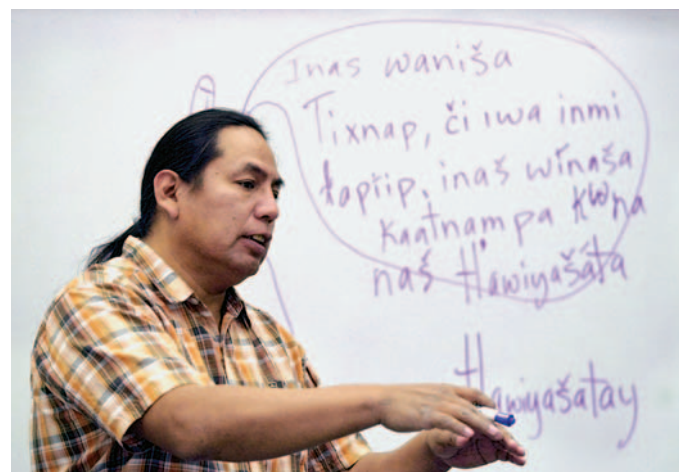 Inas waniša
Tixnap, či iwa inmi
łaptip, inaš wínaša
Kaatnampa kʷna
naš tł'awiyašáta
tł'awiyašatay